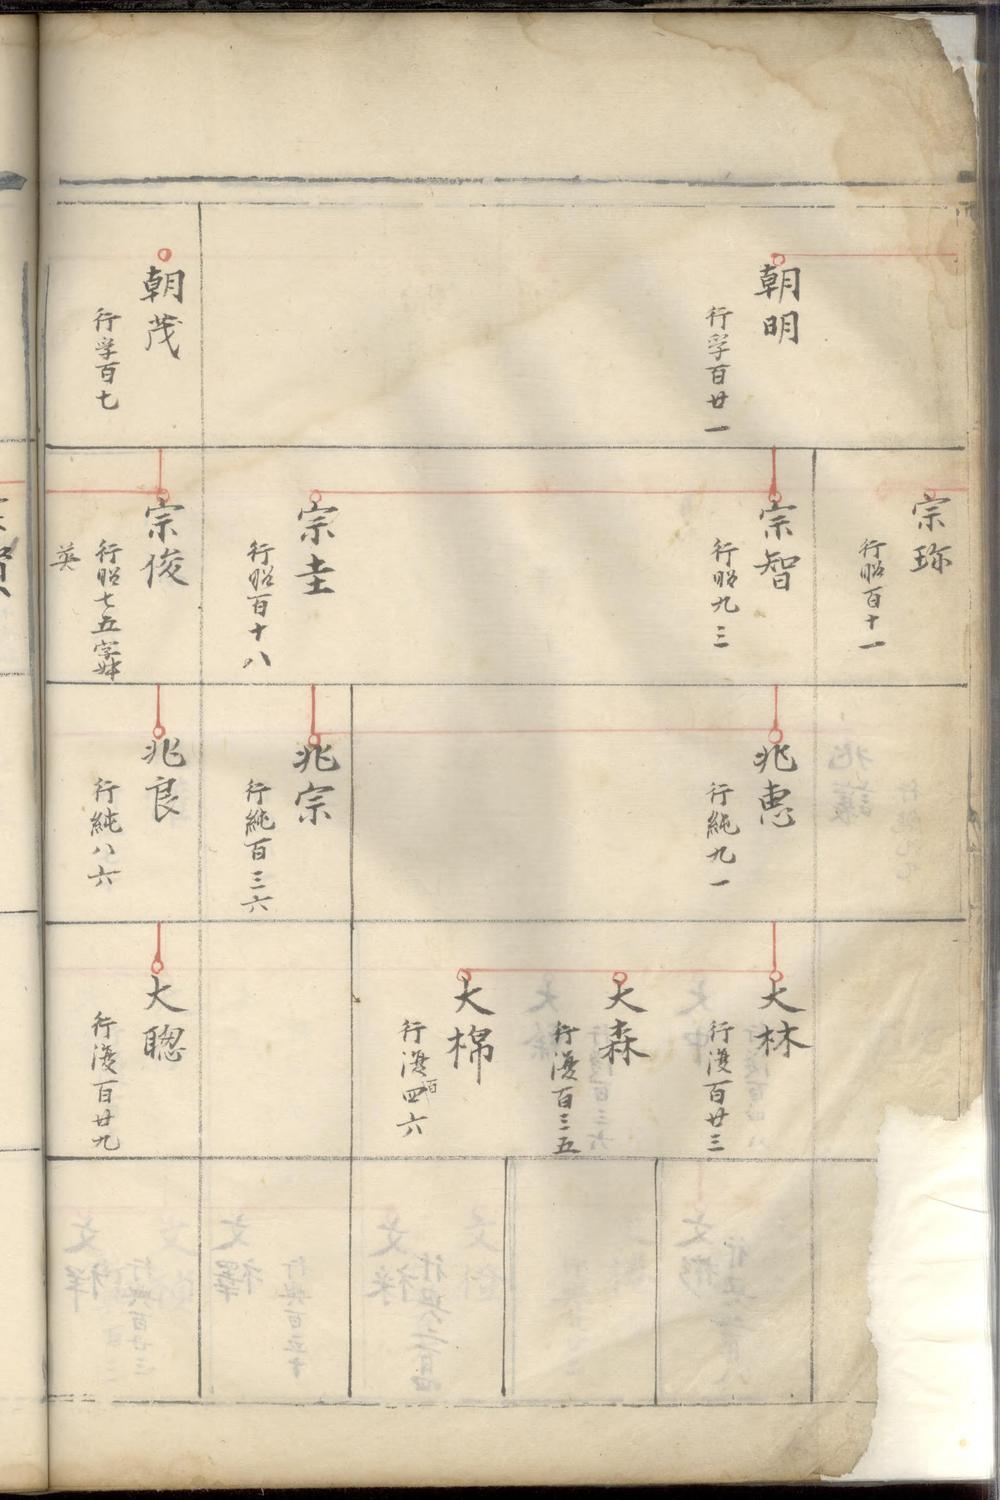 朝明
行孚百廿一
朝茂
行孚百七
宗珎
行昭百十一
宗智
行昭九三
宗圭
行昭百十八
宗俊
行昭七五字
英
兆惠
行純九一
兆宗
行純百三六
兆良
行純八六
大林
行濩百廿三
大森
行濩百三五
大棉
行濩百四六
大聰
行濩百廿九